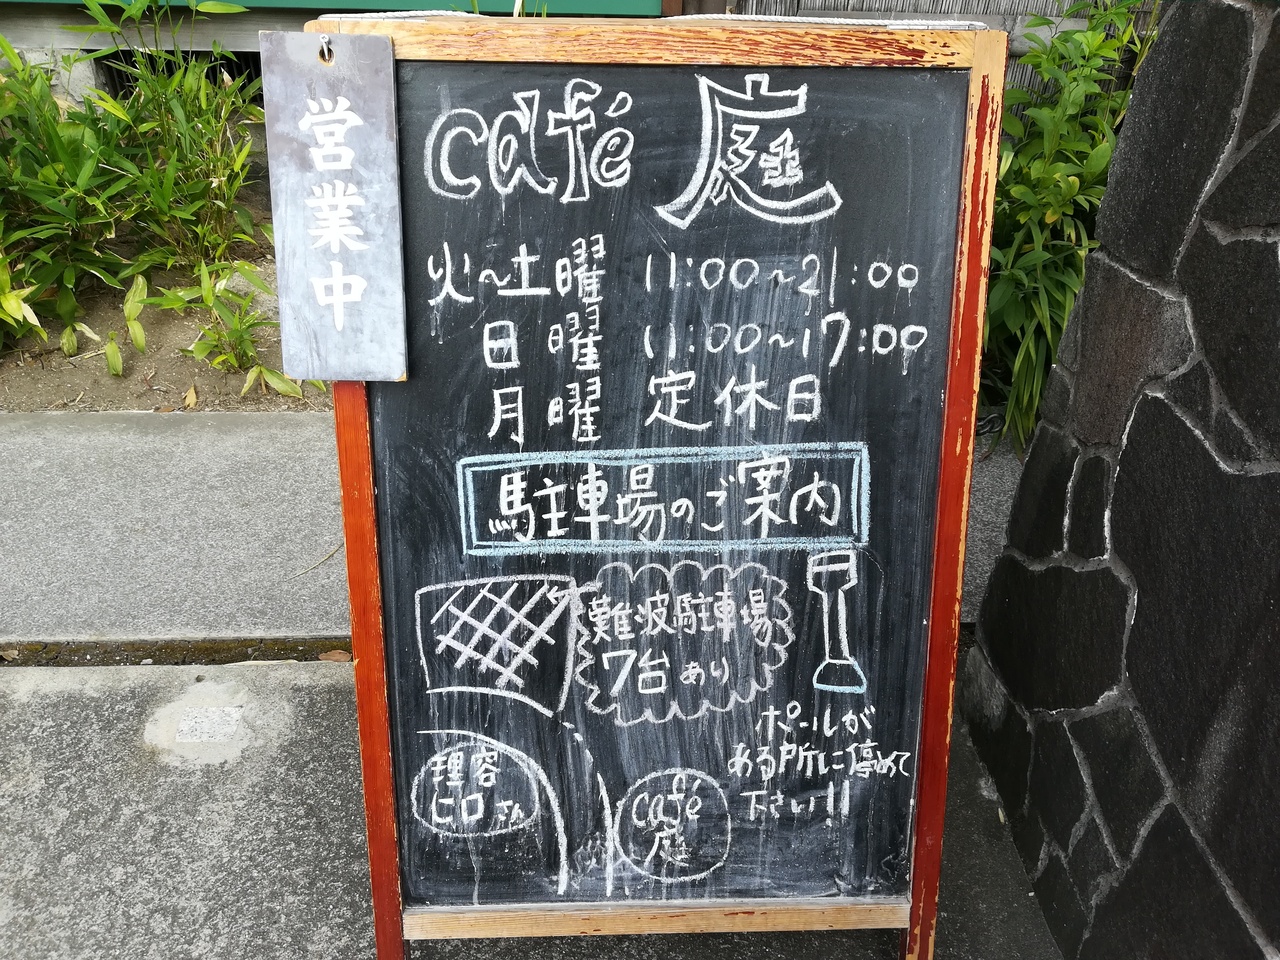 営業中
café 庭
火~土曜 11:00~21:00
日曜 11:00~17:00
月曜 定休日
駐車場のご案内
難波駐車場
7台あり
ポールが
ある所に停めて
下さい!!
理容
ヒロさん
café
庭